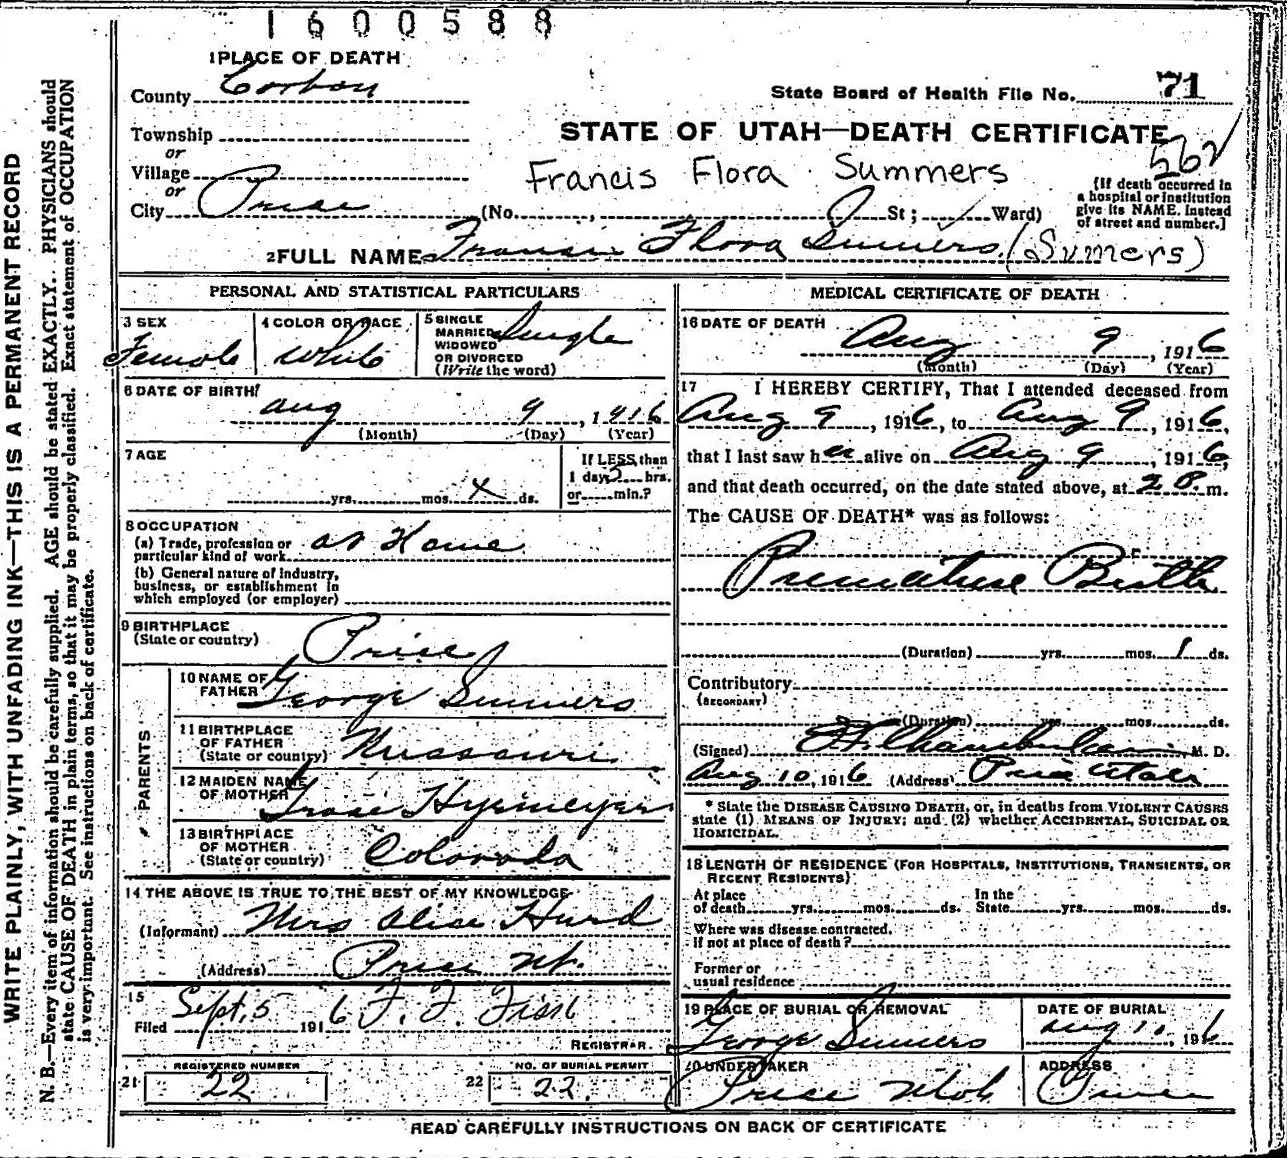 1600588
1 PLACE OF DEATH
County Carbon
State Board of Health File No. 71
Township
or
STATE OF UTAH—DEATH CERTIFICATE
562
Village
or
Francis Flora Summers
City Price (No. , St; Ward)
[If death occurred in
a hospital or institution
give its NAME. Instead
of street and number.]
2 FULL NAME Francis Flora Summers (Summers)
PERSONAL AND STATISTICAL PARTICULARS
3 SEX
Female
4 COLOR OR RACE
White
5 SINGLE
MARRIED
WIDOWED
OR DIVORCED
(Write the word)
Single
6 DATE OF BIRTH
Aug 9, 1916
(Month) (Day) (Year)
7 AGE
yrs. mos. ds.
If LESS than
1 day hrs.
or min.?
8 OCCUPATION
(a) Trade, profession or
particular kind of work at Home
(b) General nature of industry,
business, or establishment in
which employed (or employer)
9 BIRTHPLACE
(State or country) Price
PARENTS
10 NAME OF
FATHER George Summers
11 BIRTHPLACE
OF FATHER
(State or country) Missouri
12 MAIDEN NAME
OF MOTHER
13 BIRTHPLACE
OF MOTHER
(State or country) Colorado
14 THE ABOVE IS TRUE TO THE BEST OF MY KNOWLEDGE
(Informant) Mrs Alice Hurd
(Address) Price Ut.
15
Filed Sept. 5 1916 F. F. Fisk
REGISTRAR.
21 REGISTERED NUMBER
22
22 NO. OF BURIAL PERMIT
22
MEDICAL CERTIFICATE OF DEATH
16 DATE OF DEATH
Aug 9, 1916
(Month) (Day) (Year)
17 I HEREBY CERTIFY, That I attended deceased from
Aug 9, 1916, to Aug 9, 1916,
that I last saw her alive on Aug 9, 1916,
and that death occurred, on the date stated above, at 2 P. m.
The CAUSE OF DEATH* was as follows:
Premature Birth
(Duration) yrs. mos. 1 ds.
Contributory
(SECONDARY)
(Duration) yrs. mos. ds.
(Signed) M. D.
Aug 10, 1916 (Address) Price Utah
* State the DISEASE CAUSING DEATH, or, in deaths from VIOLENT CAUSES
state (1) MEANS OF INJURY; and (2) whether ACCIDENTAL, SUICIDAL OR
HOMICIDAL.
18 LENGTH OF RESIDENCE (FOR HOSPITALS, INSTITUTIONS, TRANSIENTS, OR
RECENT RESIDENTS)
At place
of death yrs. mos. ds.
In the
State yrs. mos. ds.
Where was disease contracted.
If not at place of death?
Former or
usual residence
19 PLACE OF BURIAL OR REMOVAL
George Summers
DATE OF BURIAL
Aug 1916
20 UNDERTAKER
Price Utah
ADDRESS
Price
READ CAREFULLY INSTRUCTIONS ON BACK OF CERTIFICATE
WRITE PLAINLY, WITH UNFADING INK—THIS IS A PERMANENT RECORD
N. B.—Every item of information should be carefully supplied. AGE should be stated EXACTLY. PHYSICIANS should
state CAUSE OF DEATH in plain terms, so that it may be properly classified. Exact statement of OCCUPATION
is very important. See instructions on back of certificate.